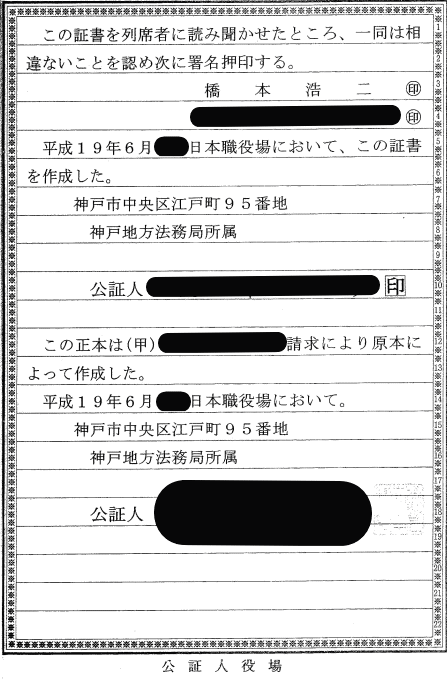 この証書を列席者に読み聞かせたところ、一同は相
違ないことを認め次に署名押印する。
橋 本 浩 二 ㊞
㊞
平成19年6月 日本職役場において、この証書
を作成した。
神戸市中央区江戸町95番地
神戸地方法務局所属
公証人 印
この正本は(甲) 請求により原本に
よって作成した。
平成19年6月 日本職役場において。
神戸市中央区江戸町95番地
神戸地方法務局所属
公証人
1
2
3
4
5
6
7
8
9
10
11
12
13
14
15
16
17
18
19
20
21
22
公証人役場